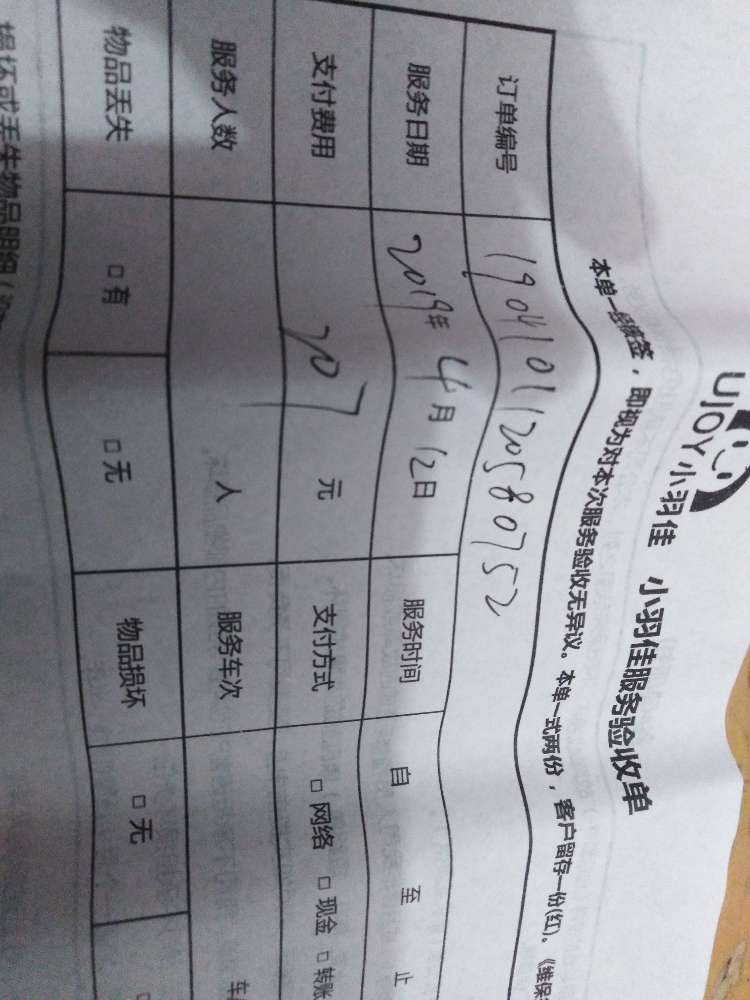 UJOY小羽佳 小羽佳服务验收单
本单一经缴签，即视为对本次服务验收无异议。本单一式两份，客户留存一份(红)。《维保
订单编号 190410112058 0752
服务日期 2019年 4月 12日 服务时间 自 至 止
支付费用 207 元 支付方式 □网络 □现金 □转账
服务人数 人 服务车次 车
物品丢失 □有 □无 物品损坏 □无 □
损坏或丢失物品明细（